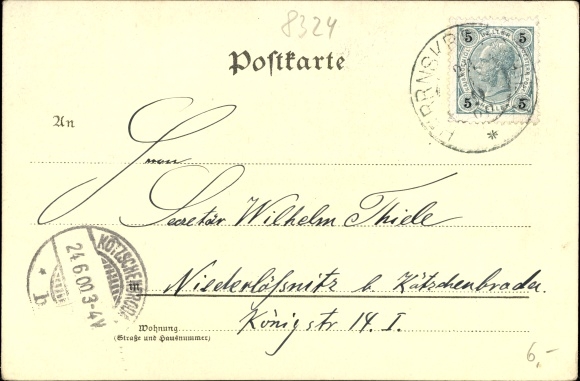 8324
Postkarte
5 5
5 5
An
Herrn
Secretär Wilhelm Thiele
in
Niederlößnitz b. Kötzschenbroda.
Königstr 14. I.
KÖTZSCHENBRODA
24.6.00.3-4N
* b
Wohnung
(Straße und Hausnummer)
6,-